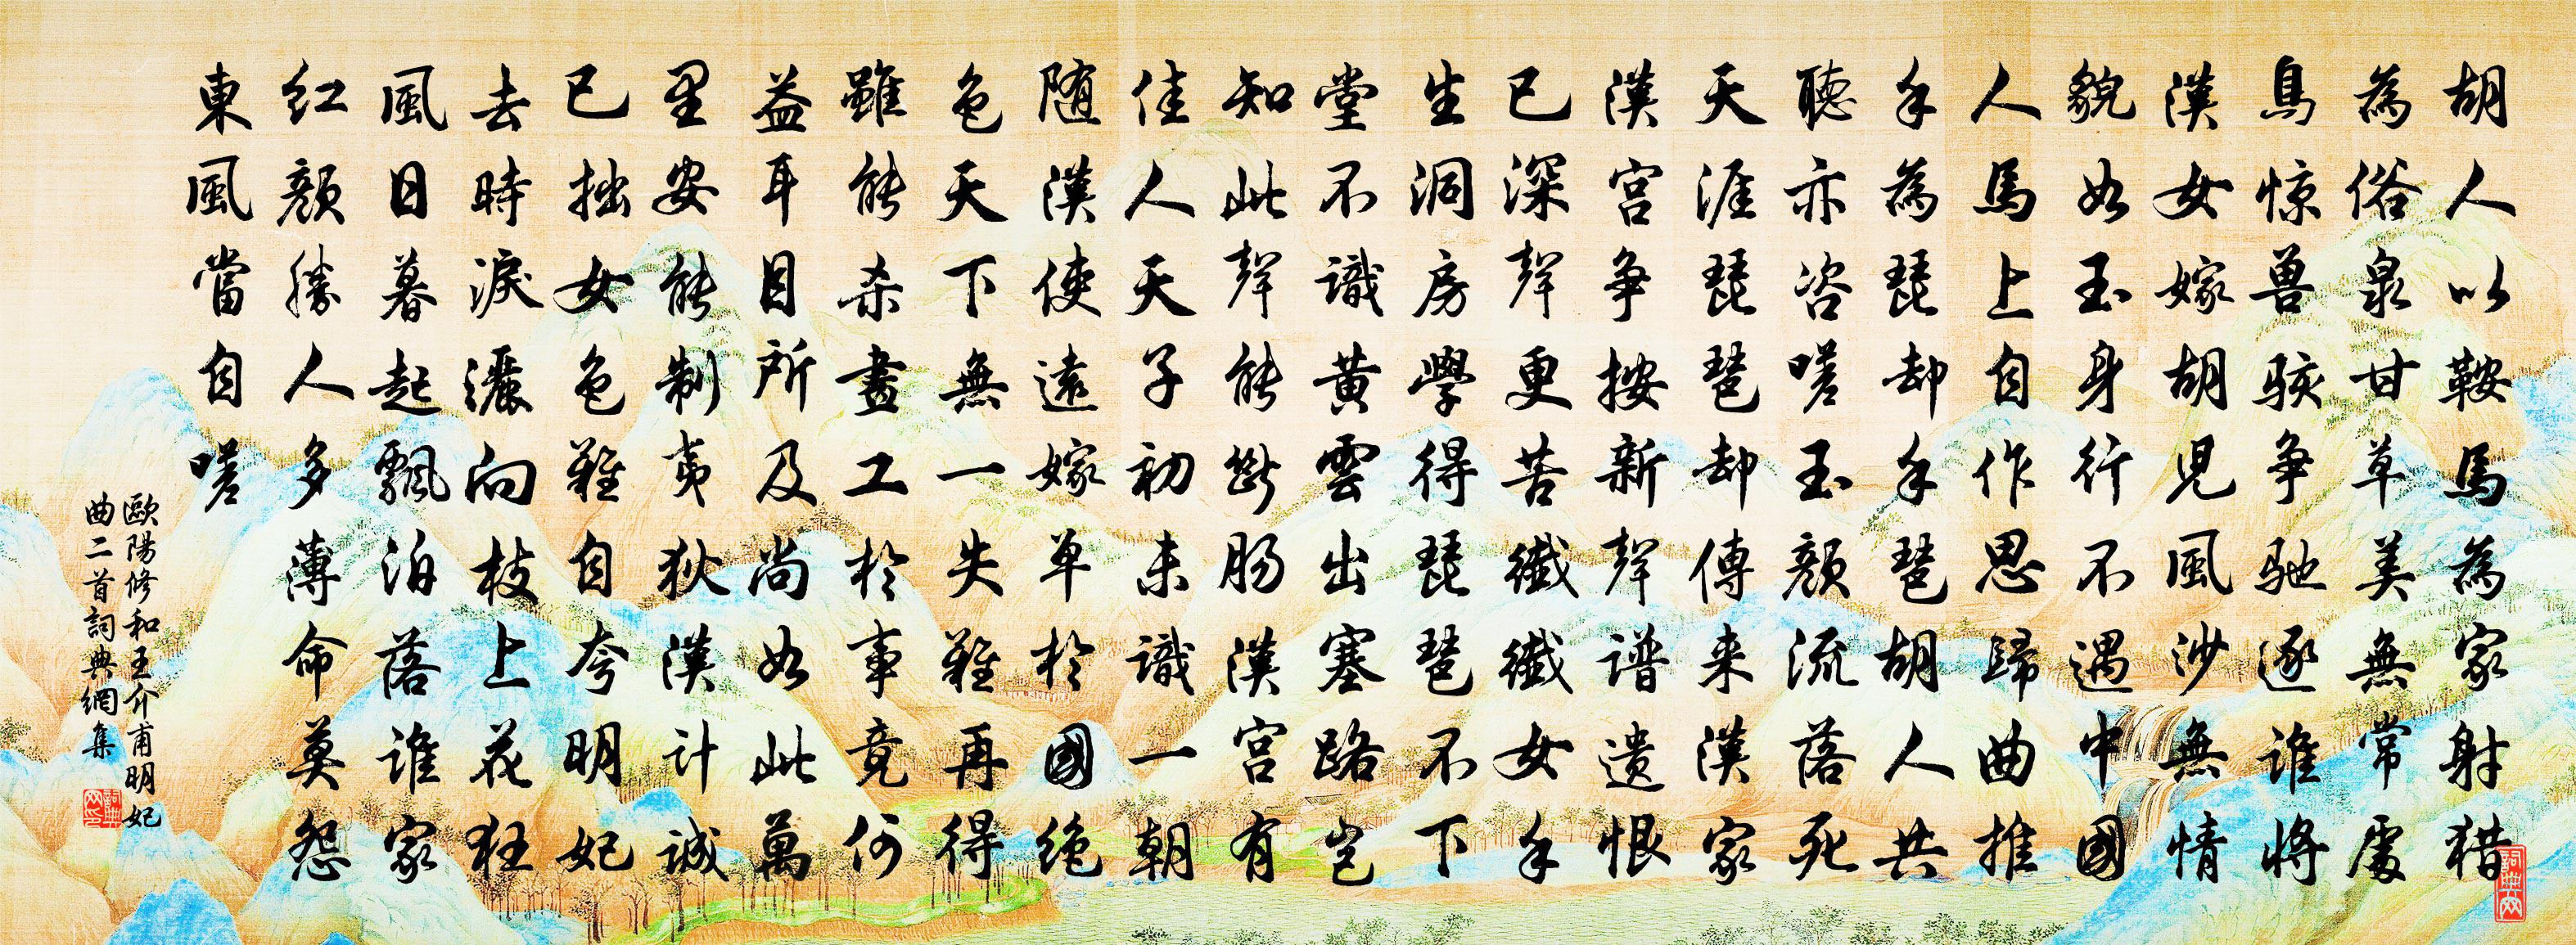 胡人以鞍馬為家射猎
為俗泉甘草美無常處
鳥惊兽駭争馳逐誰將
漢女嫁胡児風沙無情
貌如玉身行不遇中國
人馬上自作思歸曲推
手為琵却手琶胡人共
聽亦咨嗟玉顔流落死
天涯琵琶却傳来漢家
漢宫争按新聲譜遗恨
已深聲更苦纖纖女手
生洞房學得琵琶不下
堂不識黄雲出塞路岂
知此聲能斷肠漢宫有
佳人天子初未識一朝
随漢使遠嫁单於國绝
色天下無一失難再得
雖能杀畫工於事竟何
益耳目所及尚如此萬
里安能制夷狄漢計誠
已拙女色難自夸明妃
去時淚灑向枝上花狂
風日暮起飄泊落誰家
红顔勝人多薄命莫怨
東風當自嗟
歐陽修和王介甫明妃
曲二首詞典網集
詞典网印
詞典网